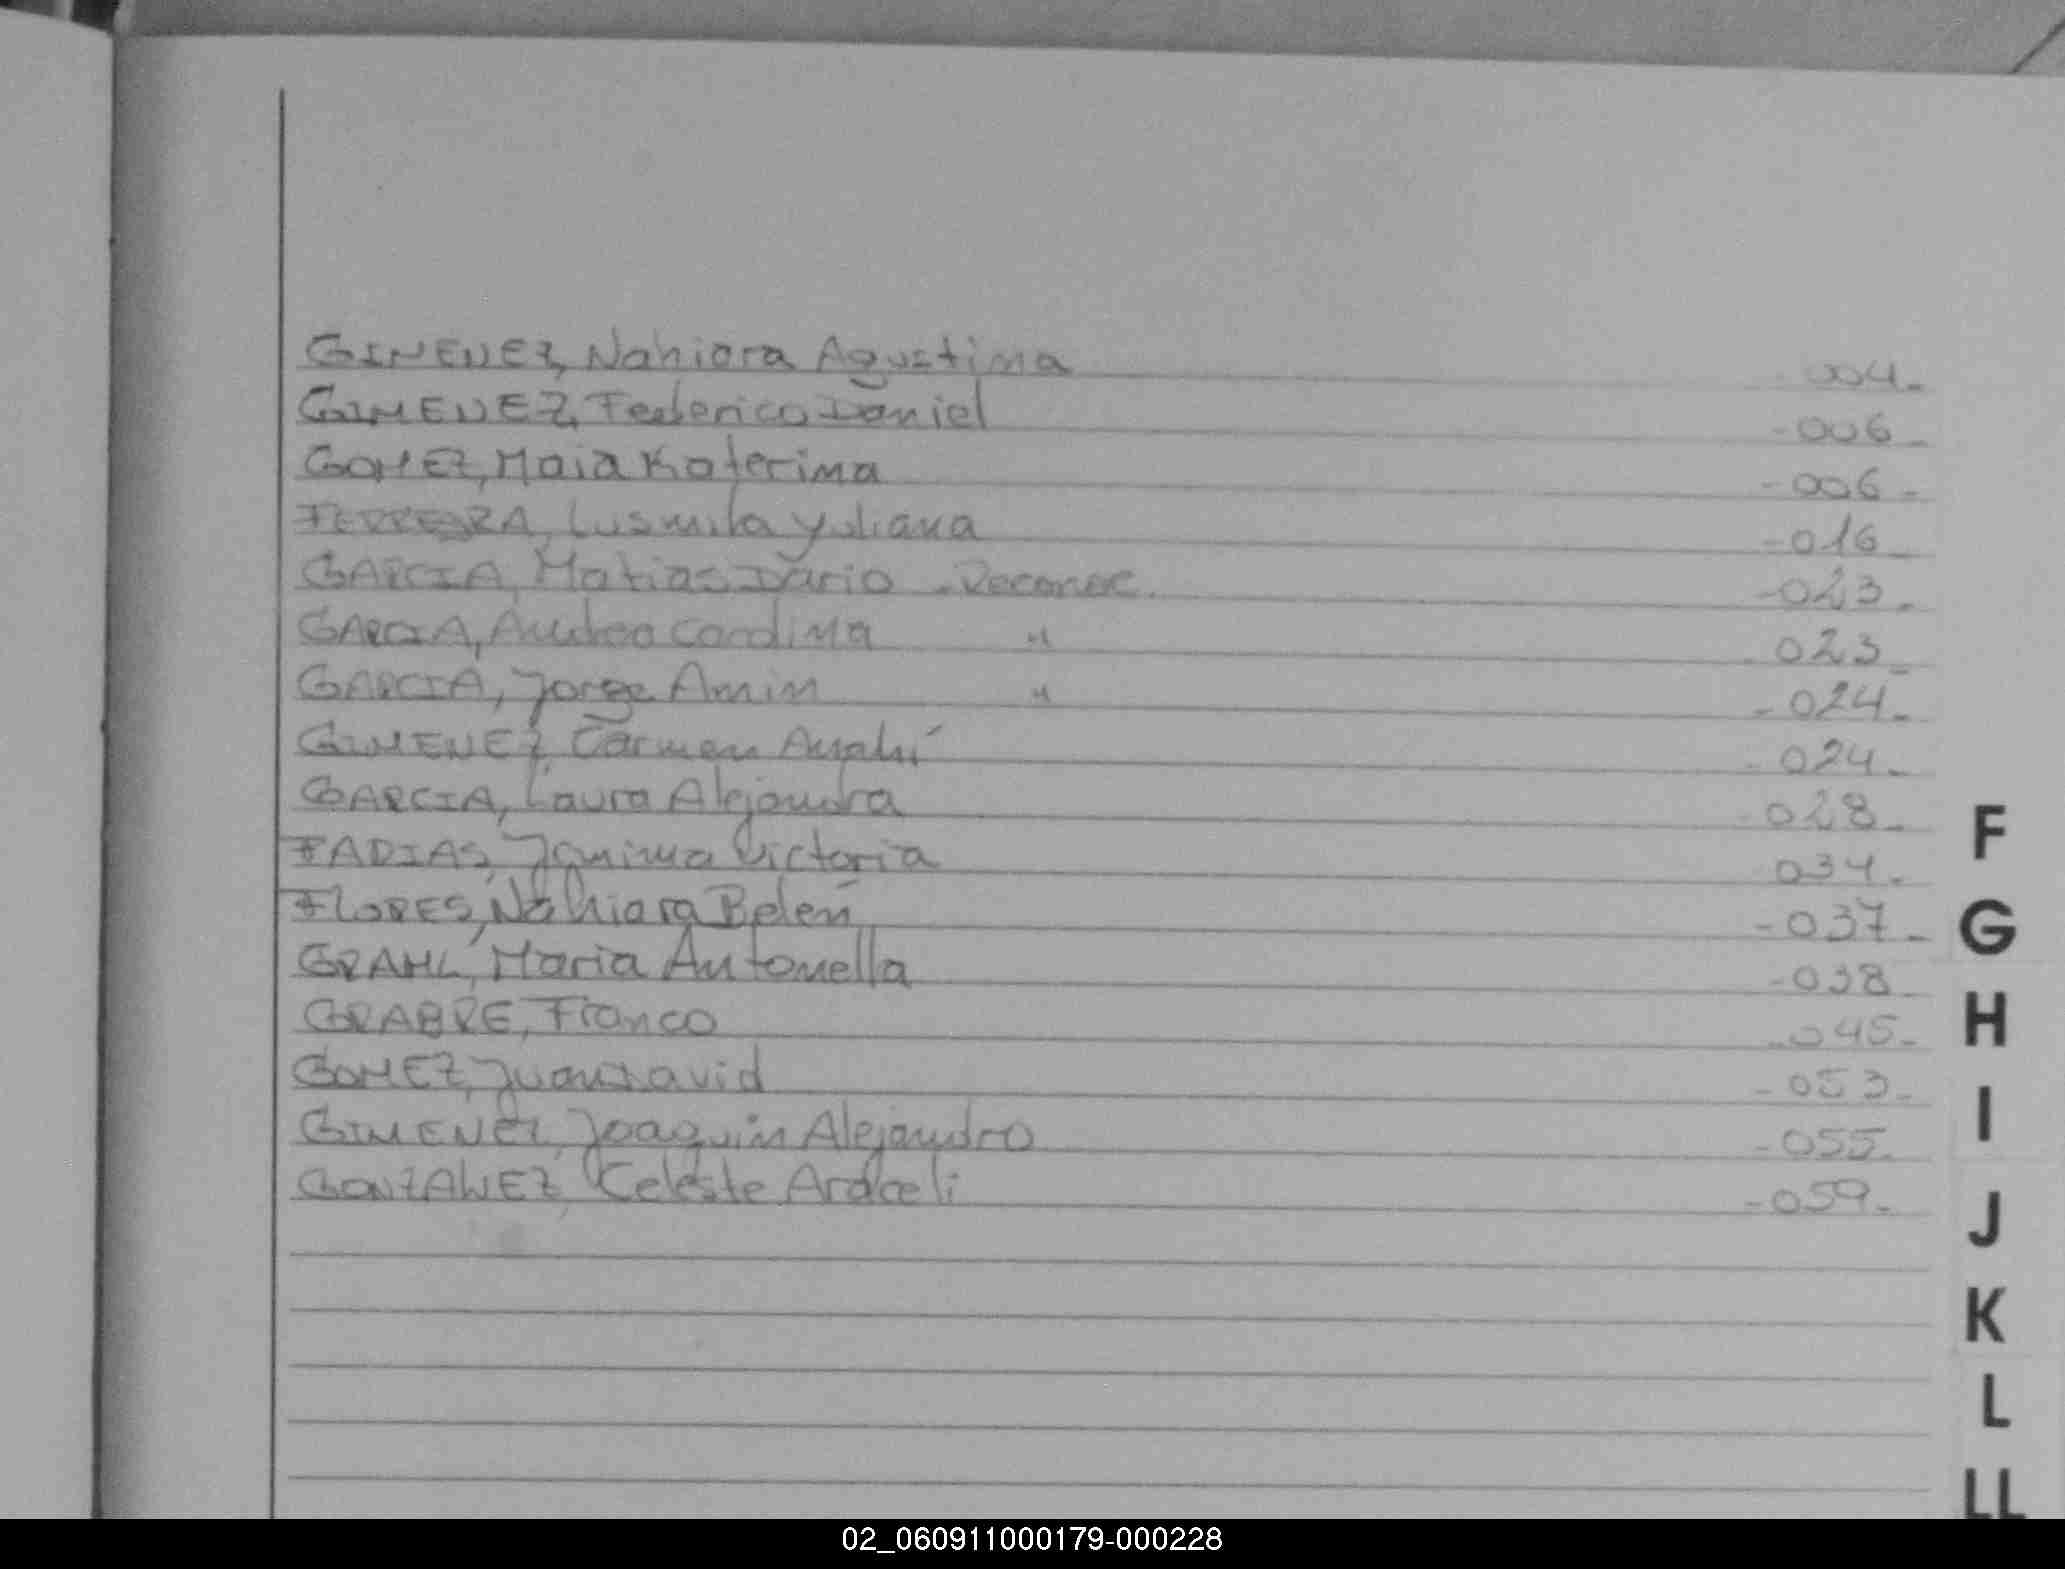 GIMENEZ, Nahiara Agustina 004-
GIMENEZ, Federico Daniel -006-
GOMEZ, Maia Katerina -006-
FERREYRA, Lusmila Yuliana -016-
GARCIA, Matias Dario - Reconoc. -023-
GARCIA, Andrea Carolina " 023-
GARCIA, Jorge Amin " -024-
GIMENEZ, Carmen Anahí -024-
GARCIA, Laura Alejandra -028-
FADIAS, Janina Victoria 034-
FLORES, Nahiara Belén -037-
GRAHL, Maria Antonella -038-
GRABRE, Franco -045-
GOMEZ, Juan David -053-
GIMENEZ, Joaquin Alejandro -055-
GONZALEZ, Celeste Araceli -059-
F
G
H
I
J
K
L
LL
02_060911000179-000228